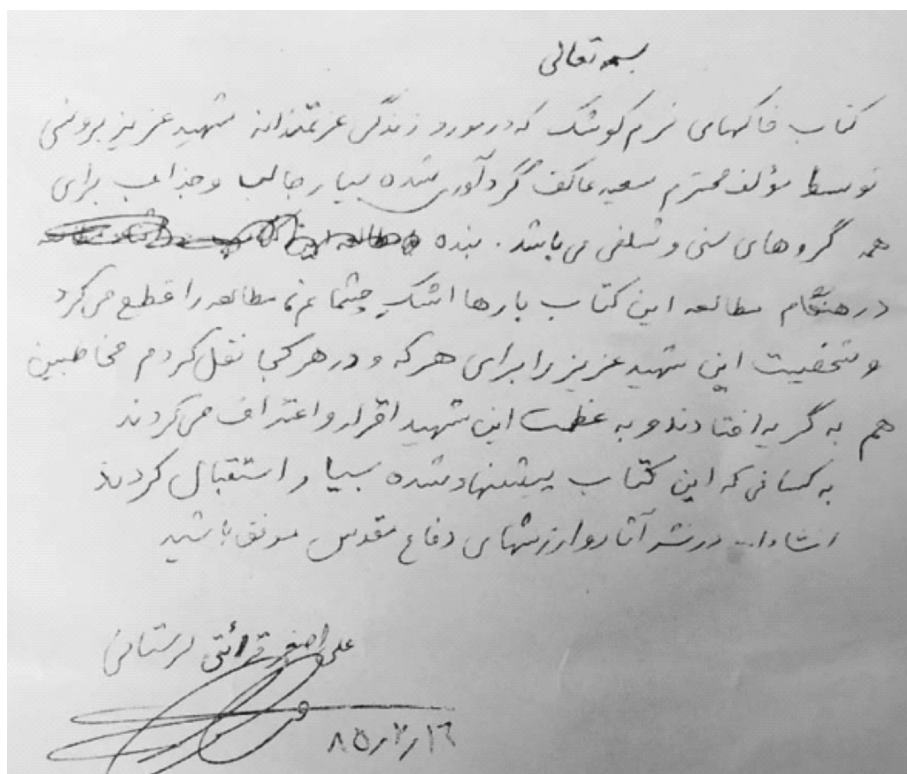 بسمه تعالی
کتاب خاکهای نرم کوشک که در مورد زندگی عزتمندانه شهید عزیز برونسی
توسط مؤلف محترم سعید عاکف گردآوری شده بسیار جالب و جذاب برای
همه گروهای سنی و شغلی می باشد. بنده
در هنگام مطالعه این کتاب بارها اشک چشمانم، مطالعه را قطع می کرد
و شخصیت این شهید عزیز را برای هر که و در هر کجا نقل کردم مخاطبین
هم به گریه افتادند و به عظمت این شهید اقرار و اعتراف می کردند
به کسانی که این کتاب پیشنهاد شده بسیار استقبال کردند
انشاءا... در نشر آثار و ارزشهای دفاع مقدس موفق باشید
علی اصغر قرائتی لرستانی
۸۵/۲/۱۶